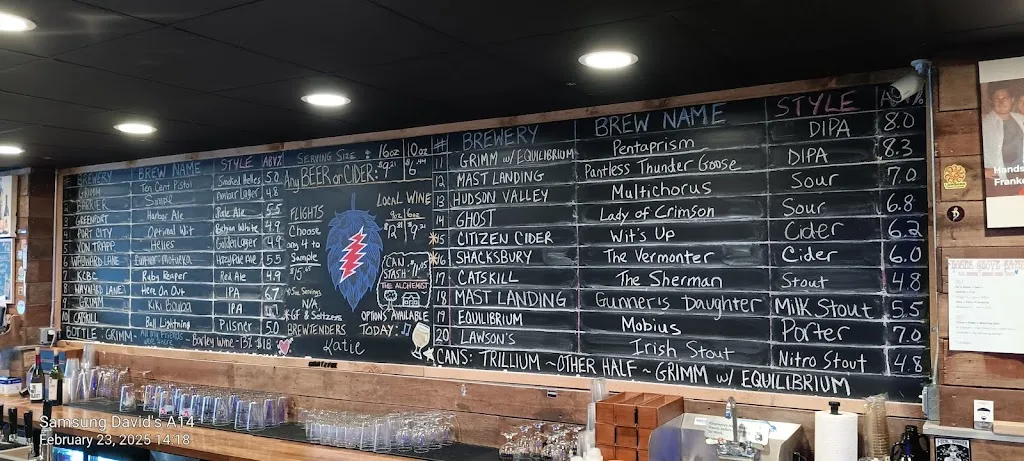 BREWERY BREW NAME STYLE ABV%
GRIMM Ten Cent Pistol Smoked Helles 5.0
Simple 4.8
3 GREENPORT Harbor Ale Pale Ale 5.5
4 PORT CITY Optimal Wit Belgian White 4.9
5 VON TRAPP Helles Golden Lager 4.9
6 WAYWARD LANE Hazy Pale Ale 5.5
7 KCBC Ruby Reaper Red Ale 4.9
8 WAYWARD LANE Here On Out IPA 6.7
9 GRIMM IPA
10 CATSKILL Ball Lightning Pilsner 5.0
BOTTLE: GRIMM- Barley Wine - 13% $18
SERVING SIZE: 16oz 10oz
Any BEER or CIDER:
LOCAL WINE
FLIGHTS
Choose
any 4 to
Sample
N/A,
GF & Seltzers
OPTIONS AVAILABLE
CAN
STASH
THE ALCHEMIST
BREWTENDERS TODAY:
Katie
# BREWERY BREW NAME STYLE ABV%
11 GRIMM w/ EQUILIBRIUM Pentaprism DIPA 8.0
12 MAST LANDING Pantless Thunder Goose DIPA 8.3
13 HUDSON VALLEY Multichorus Sour 7.0
14 GHOST Lady of Crimson Sour 6.8
15 CITIZEN CIDER Wit's Up Cider 6.2
16 SHACKSBURY The Vermonter Cider 6.0
17 CATSKILL The Sherman Stout 4.8
18 MAST LANDING Gunner's Daughter Milk Stout 5.5
19 EQUILIBRIUM Mobius Porter 7.0
20 LAWSON'S Irish Stout Nitro Stout 4.8
CANS: TRILLIUM ~OTHER HALF ~ GRIMM w/ EQUILIBRIUM
Hands
Franke
Samsung David's A14
February 23, 2025 14:18